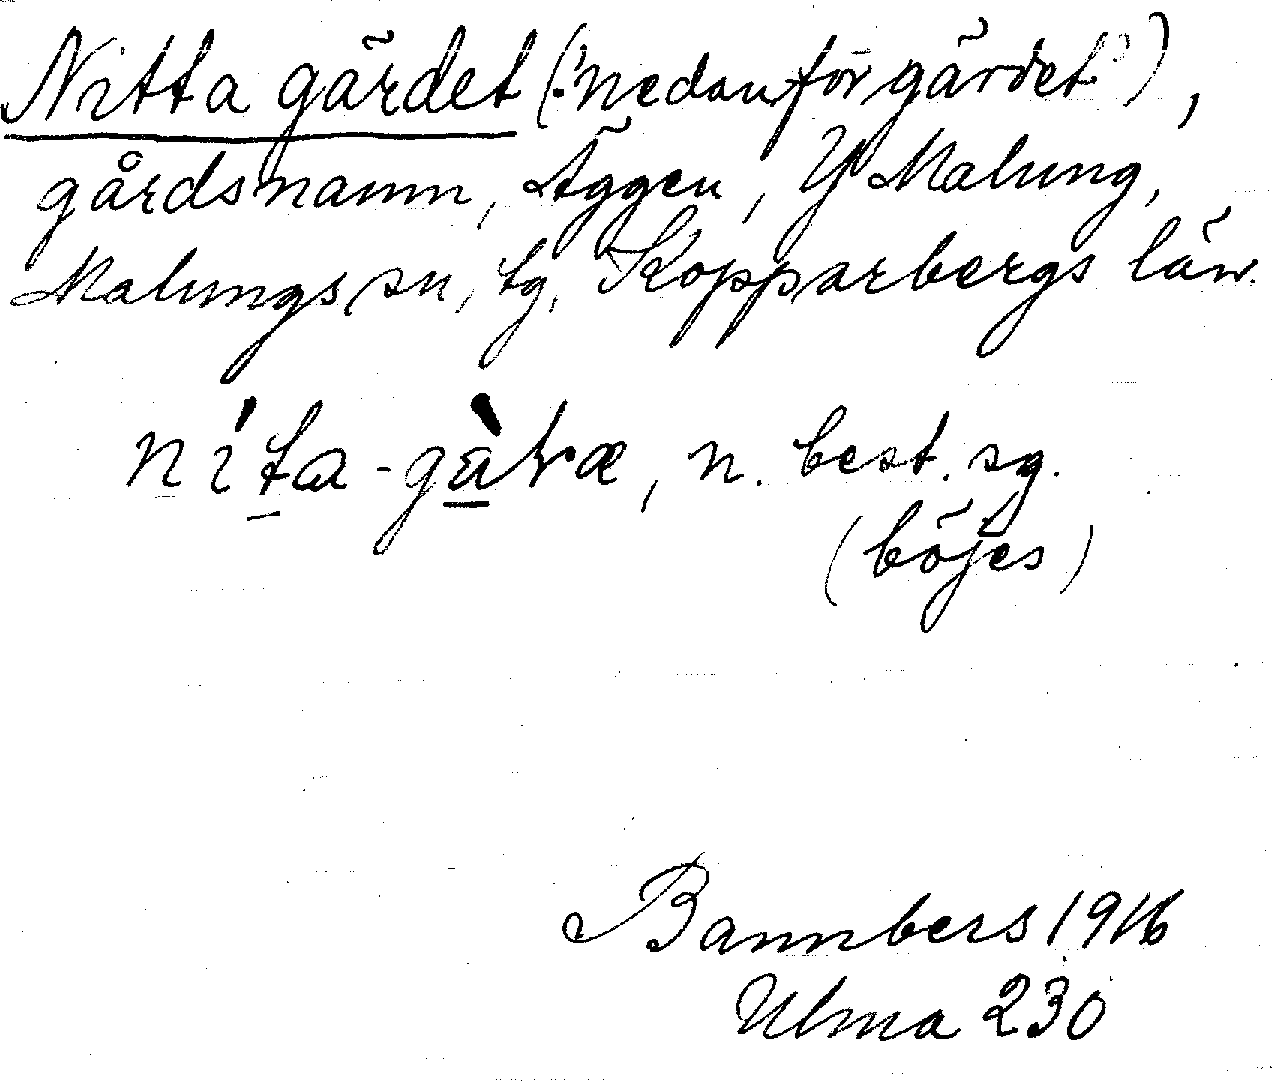 Nitta gärdet ("nedanför gärdet"),
gårdsnamn, Äggen, Y Malung,
Malungs sn, tg, Kopparbergs län.
níta-gàṛæ, n. best. sg.
(böjes)
Bannbers 1916
Ulma 230